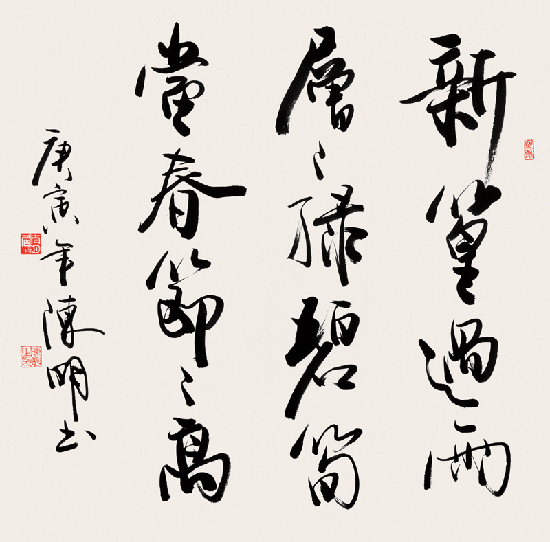 新篁過雨
層〻綠碧筍
當春節〻高
庚寅年陳明書